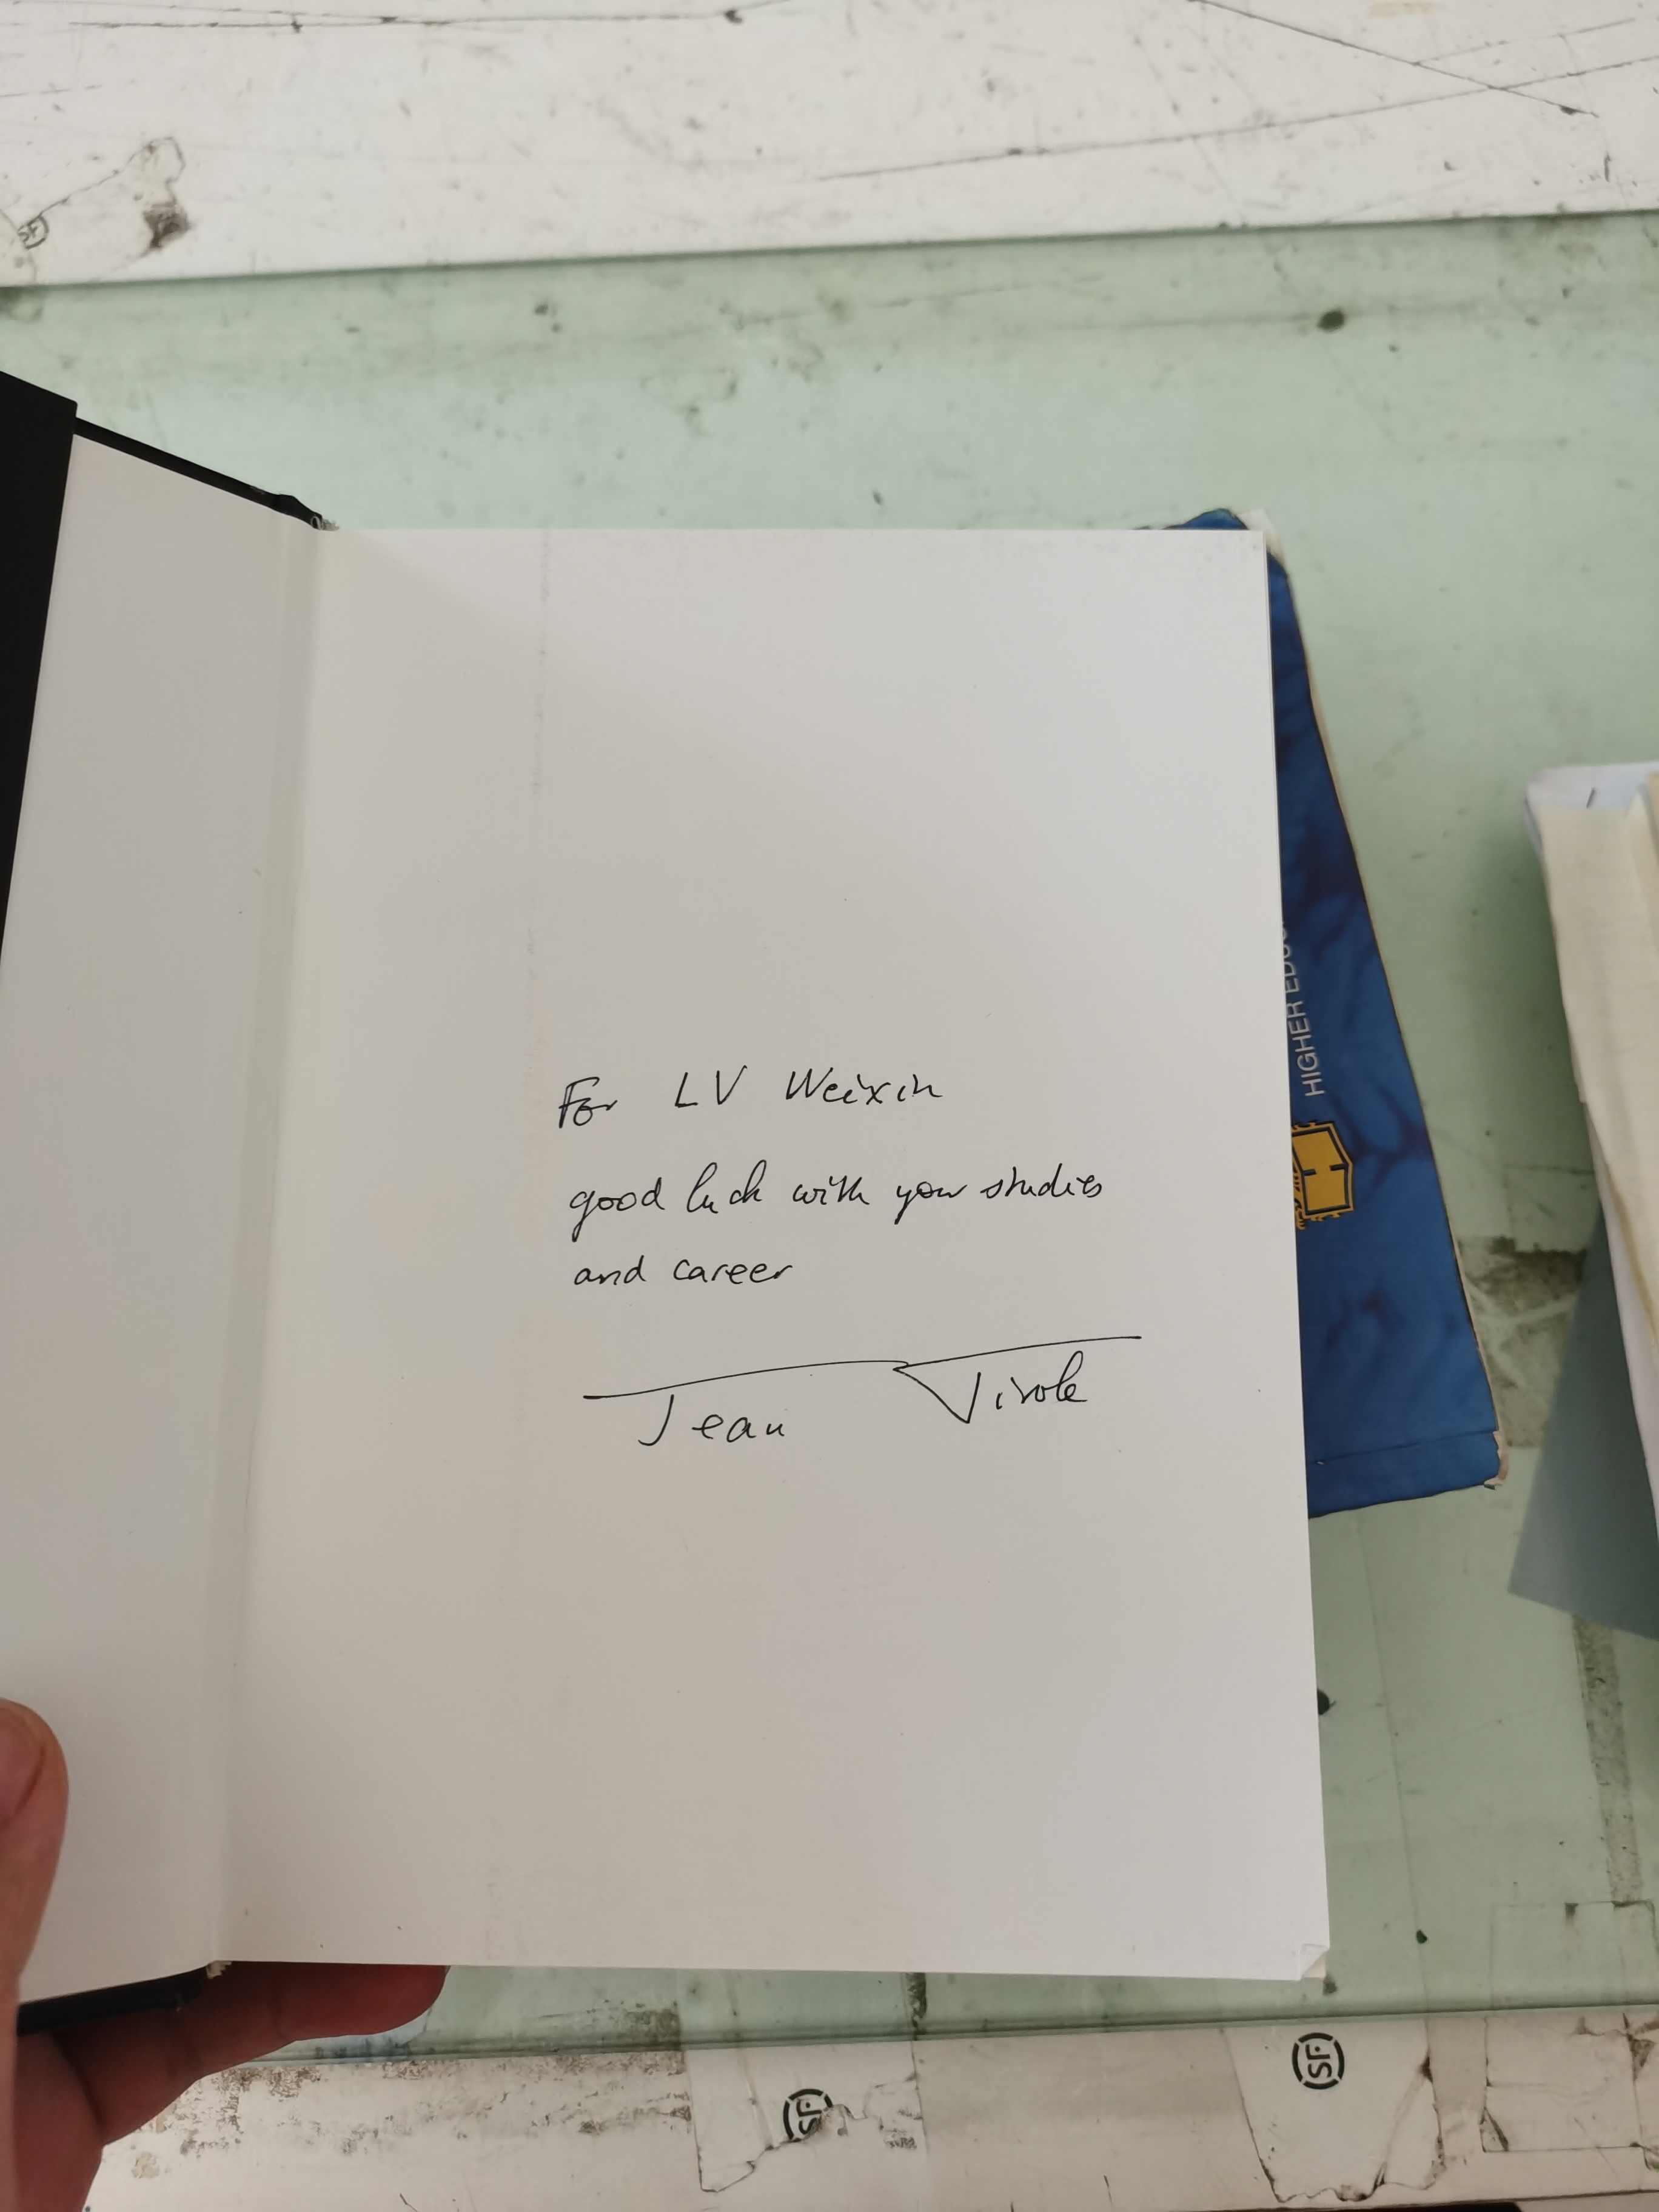 For LV Weixin
good luck with your studies
and career
Jean Tirole
HIGHER EDUC
SF
SF
SF